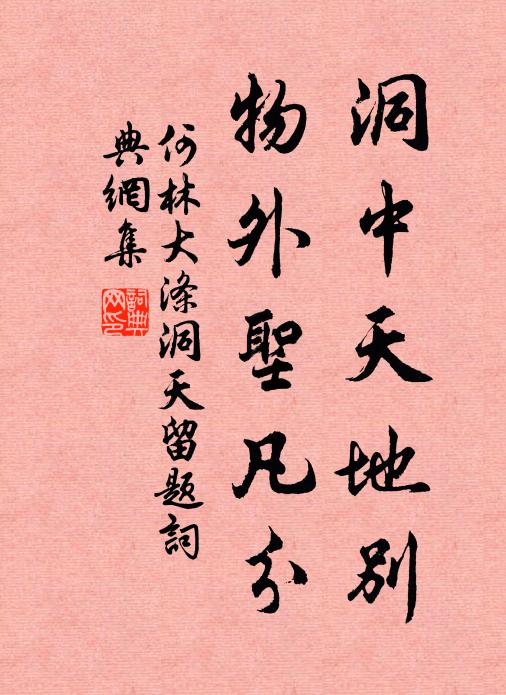 洞中天地別
物外聖凡分
何林大滌洞天留題詞
典網集
詞典網印